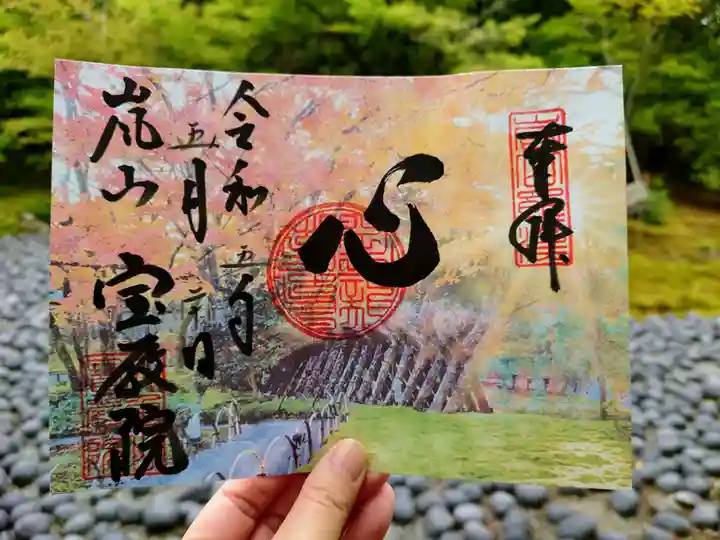 奉拝
心
令和五年
五月二十日
嵐山
宝厳院